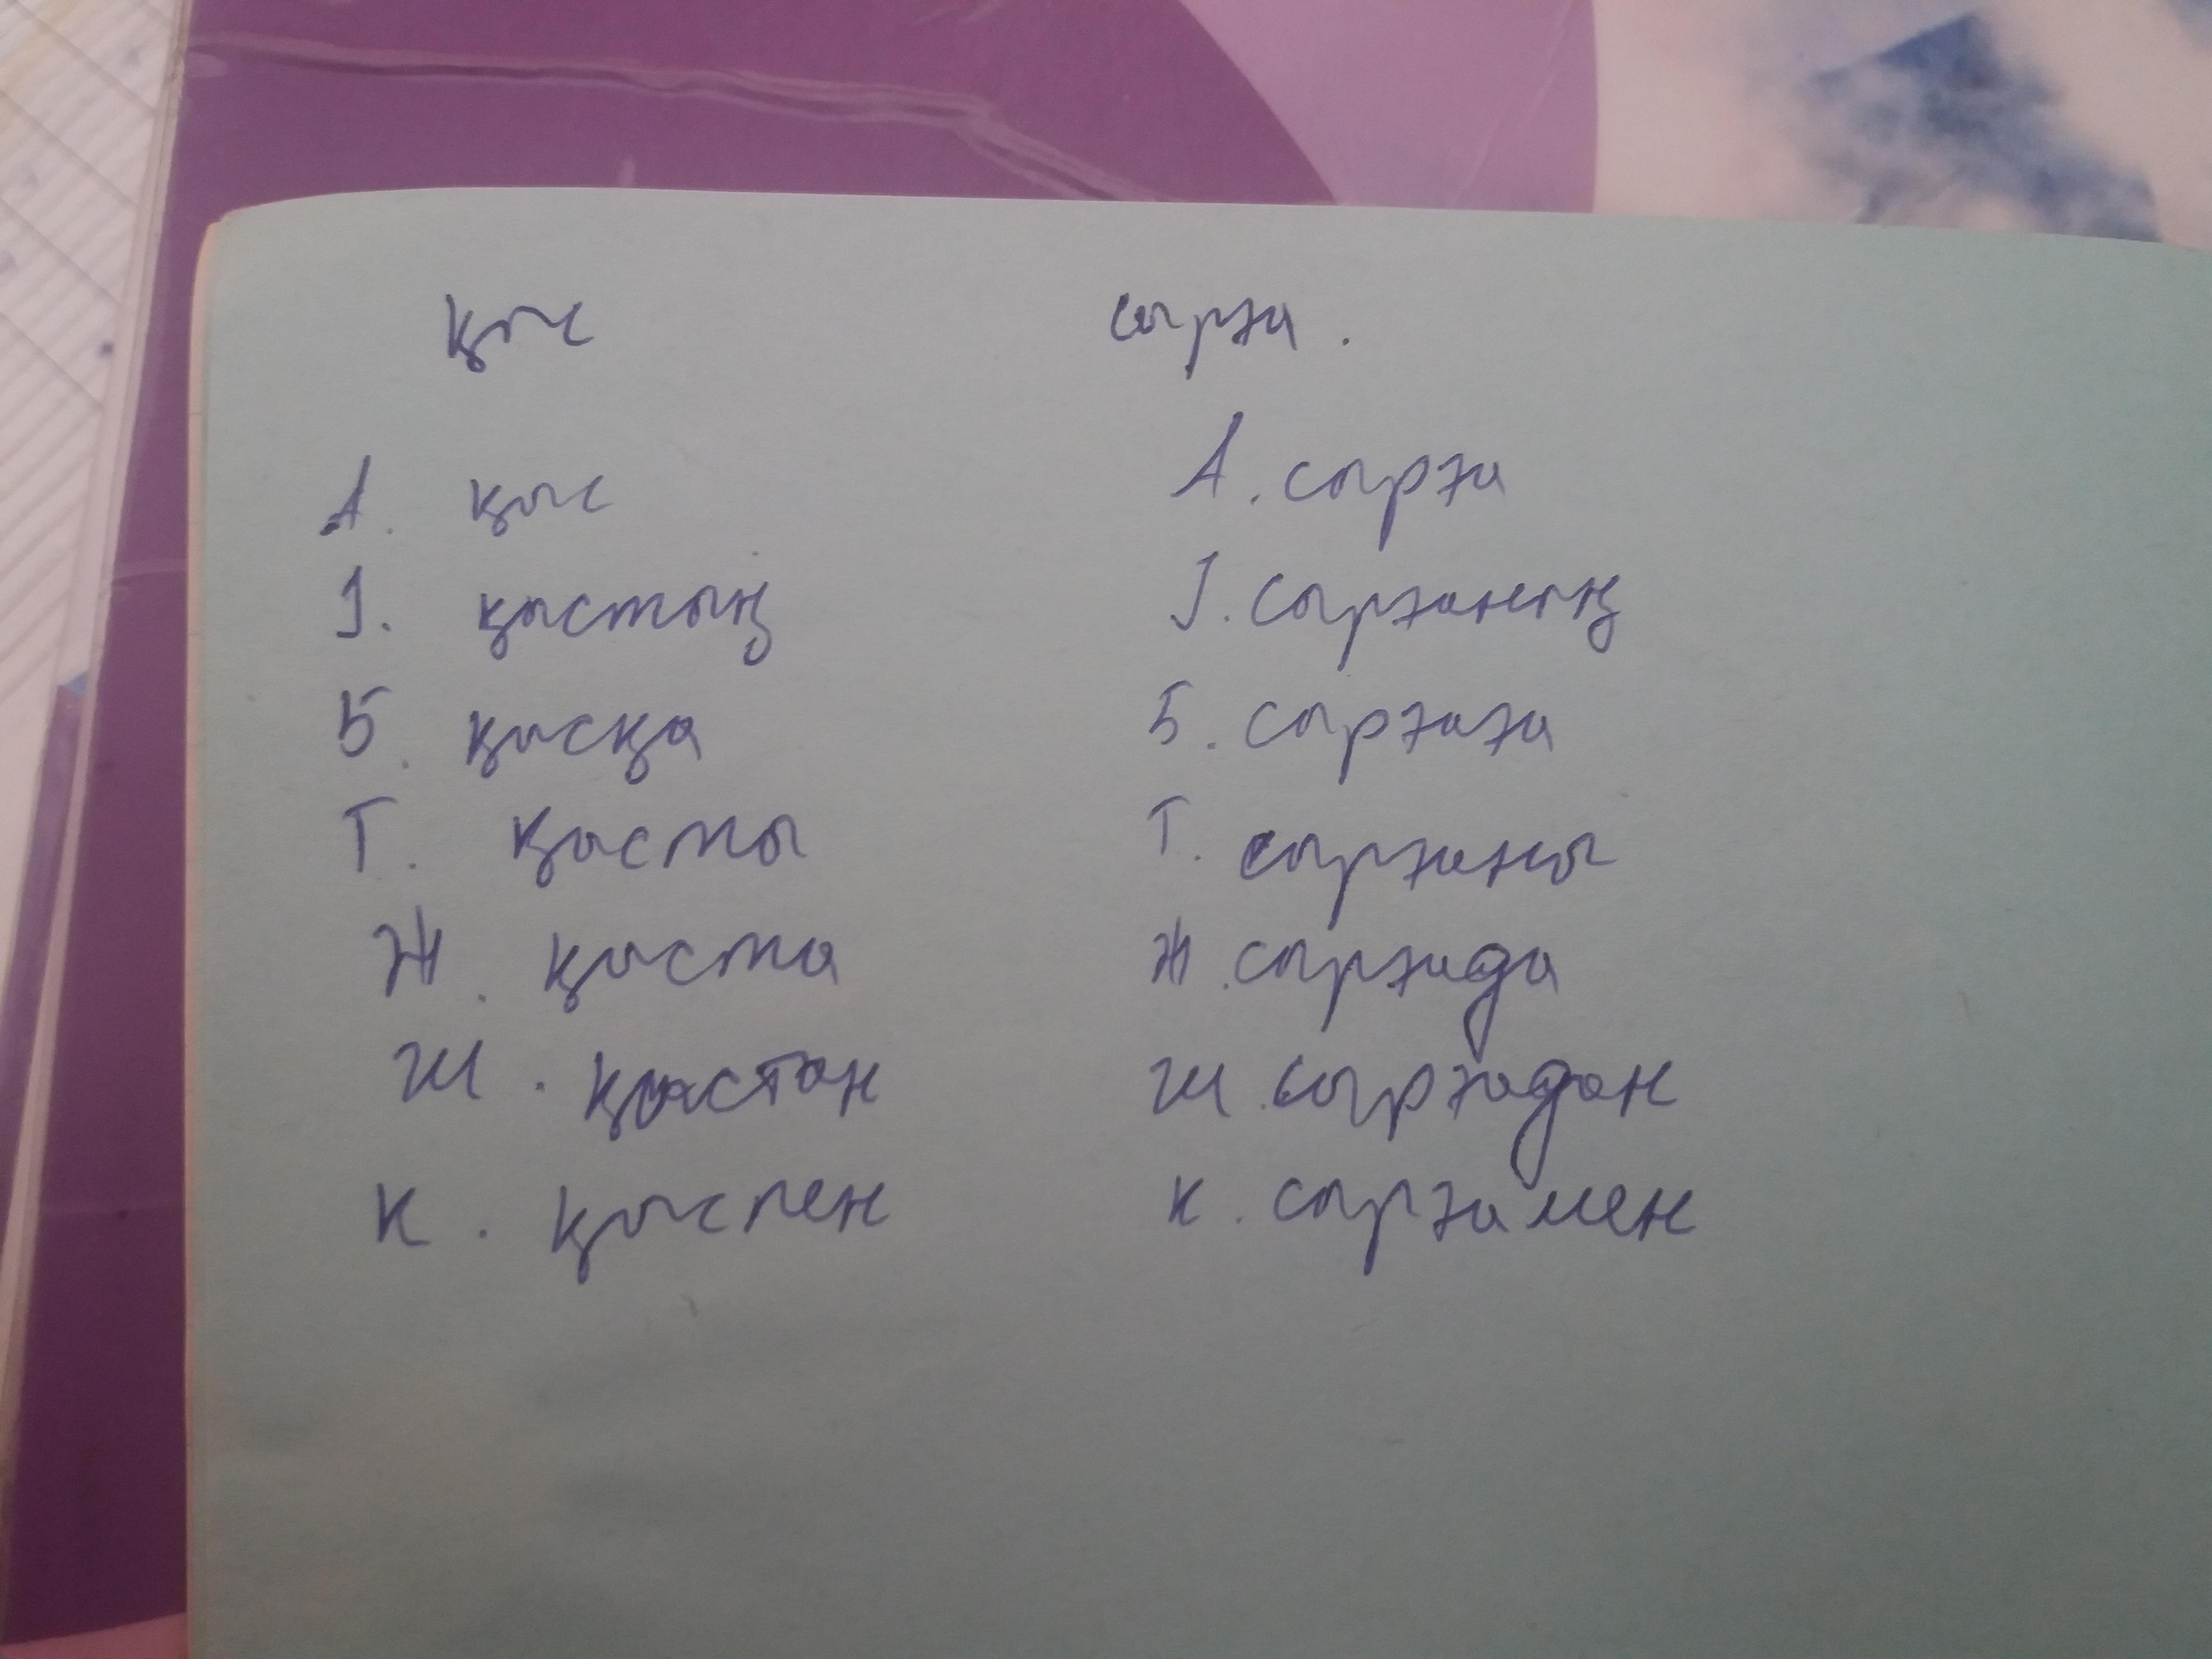 қыс
А. қыс
І. қыстың
Б. қысқа
Т. қысты
Ж. қыста
Ш. қыстан
К. қыспен
сырға.
А. сырға
І. сырғаның
Б. сырғаға
Т. сырғаны
Ж. сырғада
Ш. сырғадан
К. сырғамен